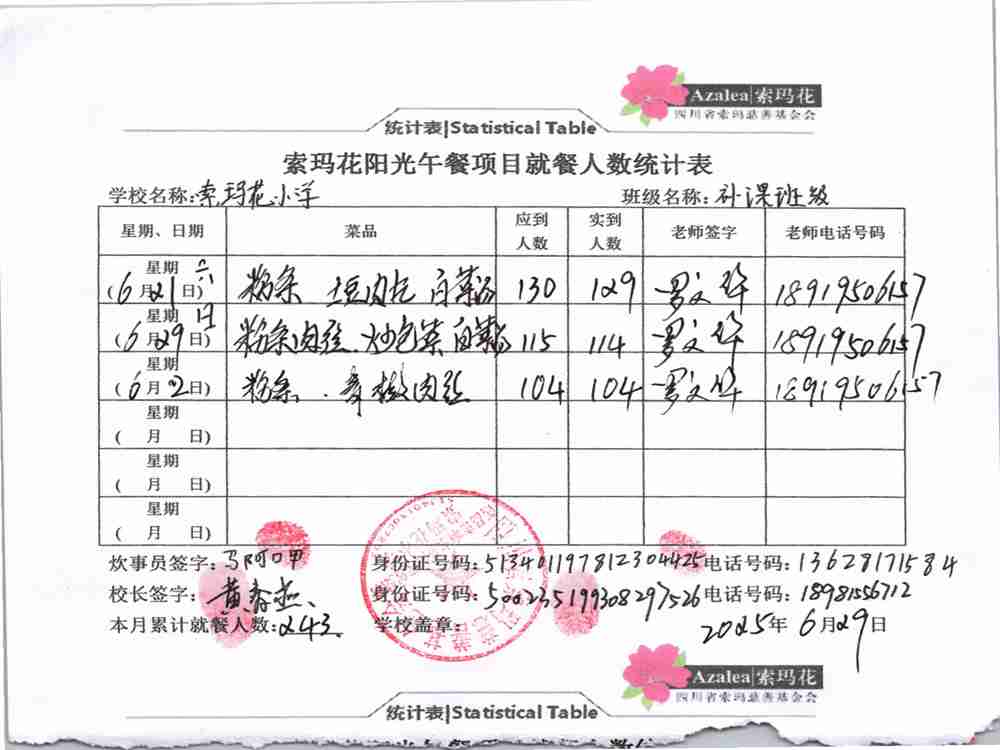 Azalea|索玛花
四川省索玛慈善基金会
统计表|Statistical Table
索玛花阳光午餐项目就餐人数统计表
学校名称:索玛花小学 班级名称:补课班级
星期、日期 菜品 应到人数 实到人数 老师签字 老师电话号码
星期六
(6月21日) 粉条 土豆肉片 白菜汤 130 129 罗文华 18919506157
星期日
(6月29日) 粉条肉丝 炒包菜 白菜汤 115 114 罗文华 18919506157
星期
(6月2日) 粉条 肉丝 104 104 罗文华 18919506157
星期
( 月 日)
星期
( 月 日)
星期
( 月 日)
炊事员签字:马阿口甲 身份证号码:513401197812304425 电话号码:13628171584
校长签字:黄春燕 身份证号码:500235199308297526 电话号码:18981556712
本月累计就餐人数:243 学校盖章: 2025年6月29日
Azalea|索玛花
四川省索玛慈善基金会
统计表|Statistical Table